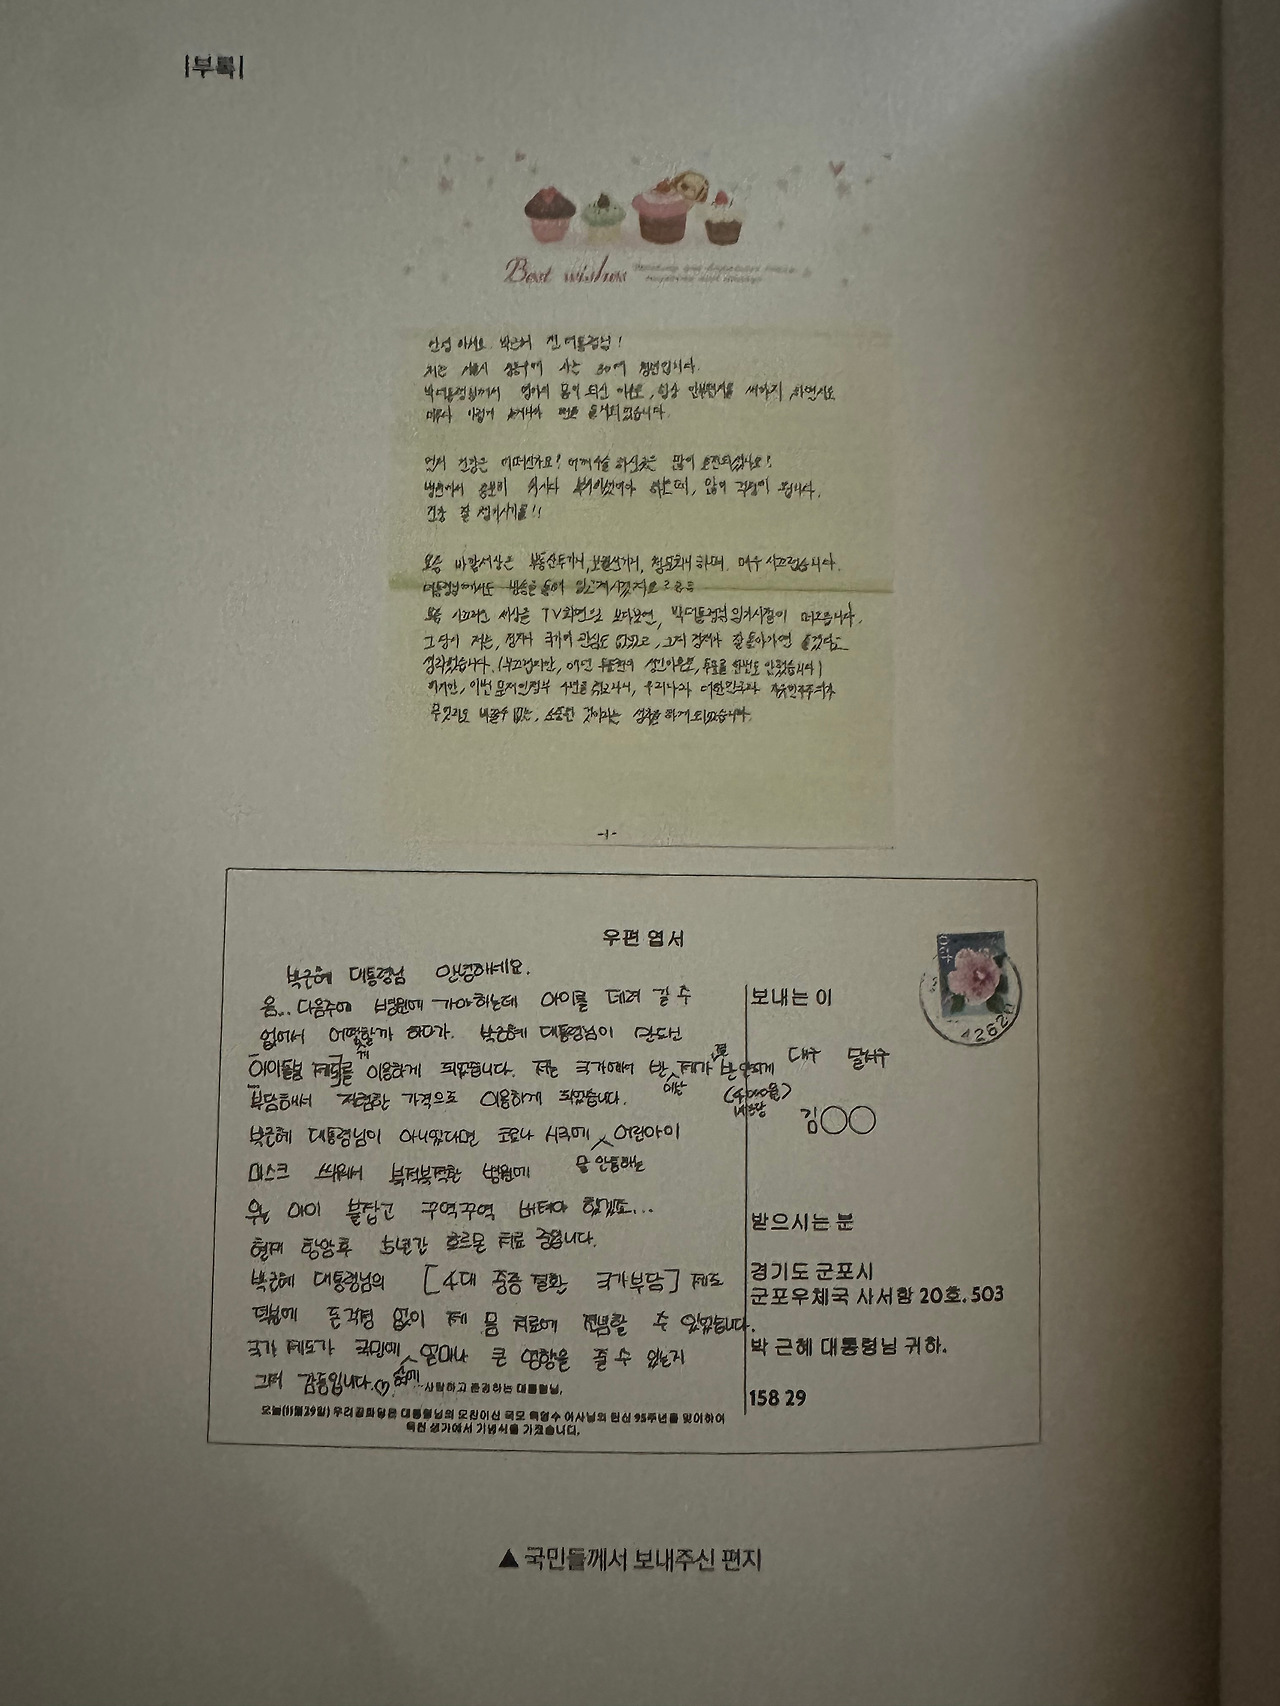 |부록|
Best wishes
안녕하세요. 박근혜 전 대통령님!
저는 서울시 성동구에 사는 30대 청년입니다.
박대통령님께서 영어의 몸이 되신 이후로, 항상 안부편지를 써야지 하면서도
이렇게 늦게나마 펜을 들게 되었습니다.
먼저 건강은 어떠신가요? 어깨수술 하신곳은 많이 호전되셨나요?
병원에서 충분히 하는데, 많이 걱정이 됩니다.
건강 잘 챙기시기를!!
요즘 바깥세상은 부동산투기니, 보궐선거니, 하며 매우 시끄럽습니다.
대통령님께서도 방송을 통해 알고계시겠지요 ㄹㅎㅎ
요즘 시끄러운 세상을 TV화면으로 보다보면, 박대통령님 임기시절이 떠오릅니다.
그 당시 저는, 정치나 국가에 관심도 없었고, 그저 경제가 잘 돌아가면 좋겠다고
생각했습니다. (부끄럽지만, 성인이후로, 투표를 한번도 안했습니다)
하지만, 이번 문재인정부 4년을 겪고나서, 우리나라 대한민국과 자유민주주의가
무엇과도 바꿀수 없는, 소중한 것이라는 생각을 하게 되었습니다.
-1-
우편 엽서
박근혜 대통령님 안녕하세요.
음... 다음주에 병원에 가야하는데 아이를 데려 갈 수
보내는 이
없어서 어떻할까 하다가. 박근혜 대통령님이 만드신
아이돌봄 제도를 이용하게 되었습니다. 저는 국가에서 반 제가 반
대구 달서구
부담해서 저렴한 가격으로 이용하게 되었습니다.
김○○
박근혜 대통령님이 아니었다면 코로나 시국에 말 안통하는 어린아이
마스크 씌워서 북적북적한 병원에
우는 아이 붙잡고 꾸역꾸역 버텨야 했겠죠...
받으시는 분
현재 항암후 5년간 호르몬 치료 중입니다.
경기도 군포시
박근혜 대통령님의 [4대 중증 질환 국가부담] 제도
군포우체국 사서함 20호. 503
덕분에 돈걱정 없이 제 몸 치료에 전념할 수 있었습니다.
국가 제도가 국민에 얼마나 큰 영향을 줄 수 있는지
박 근혜 대통령님 귀하.
그저 감동입니다.♡
사랑하고 존경하는 대통령님,
158 29
오늘(11월29일) 우리공화당은 대통령님의 모친이신 국모 육영수 여사님의 탄신 95주년을 맞이하여
옥천 생가에서 기념식을 가졌습니다.
▲ 국민들께서 보내주신 편지